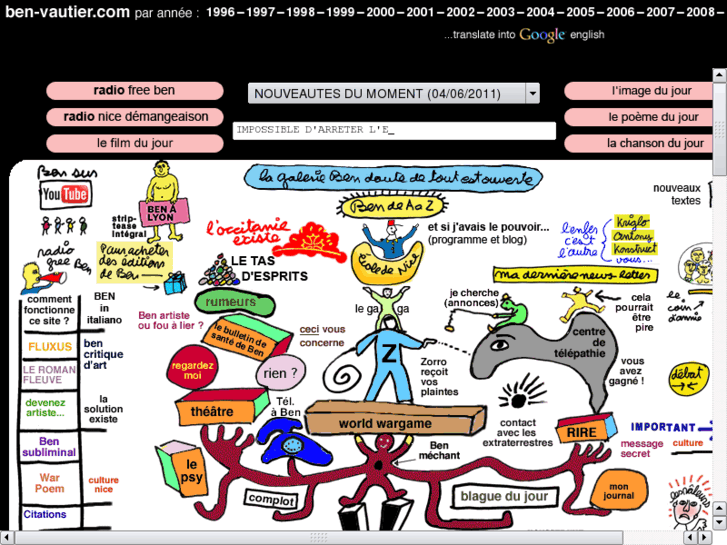 ben-vautier.com par année : 1996–1997–1998–1999–2000–2001–2002–2003–2004–2005–2006–2007–2008–
...translate into Google english
radio free ben
NOUVEAUTES DU MOMENT (04/06/2011)
l'image du jour
radio nice démangeaison
IMPOSSIBLE D'ARRETER L'E_
le poème du jour
le film du jour
la chanson du jour
Ben sur
YouTube
strip-
tease
intégral
BEN À
LYON
la galerie Ben doute de tout est ouverte
Ben de A à Z
nouveaux
textes
l'occitanie
existe
et si j'avais le pouvoir...
(programme et blog)
l'enfer
c'est
l'autre
Kriglo
Antony
Konstruct
vous...
radio
free Ben
Pour acheter
des éditions
de Ben
LE TAS
D'ESPRITS
École de Nice
ma dernière news letter
comment
fonctionne
ce site ?
BEN
in
italiano
Ben artiste
ou fou à lier ?
rumeurs
le bulletin de
santé de Ben
ceci vous
concerne
le ga
ga
je cherche
(annonces)
cela
pourrait
être
pire
le coin
d'annie
FLUXUS
ben
critique
d'art
regardez
moi
rien ?
Z
Zorro
reçoit
vos
plaintes
centre
de
télépathie
vous
avez
gagné !
LE ROMAN
FLEUVE
débat
devenez
artiste...
la
solution
existe
théâtre
Tél.
à Ben
world wargame
contact
avec les
extraterrestres
RIRE
IMPORTANT
message
secret
culture
Ben
subliminal
le
psy
Ben
méchant
War
Poem
culture
nice
complot
blague du jour
mon
journal
Citations